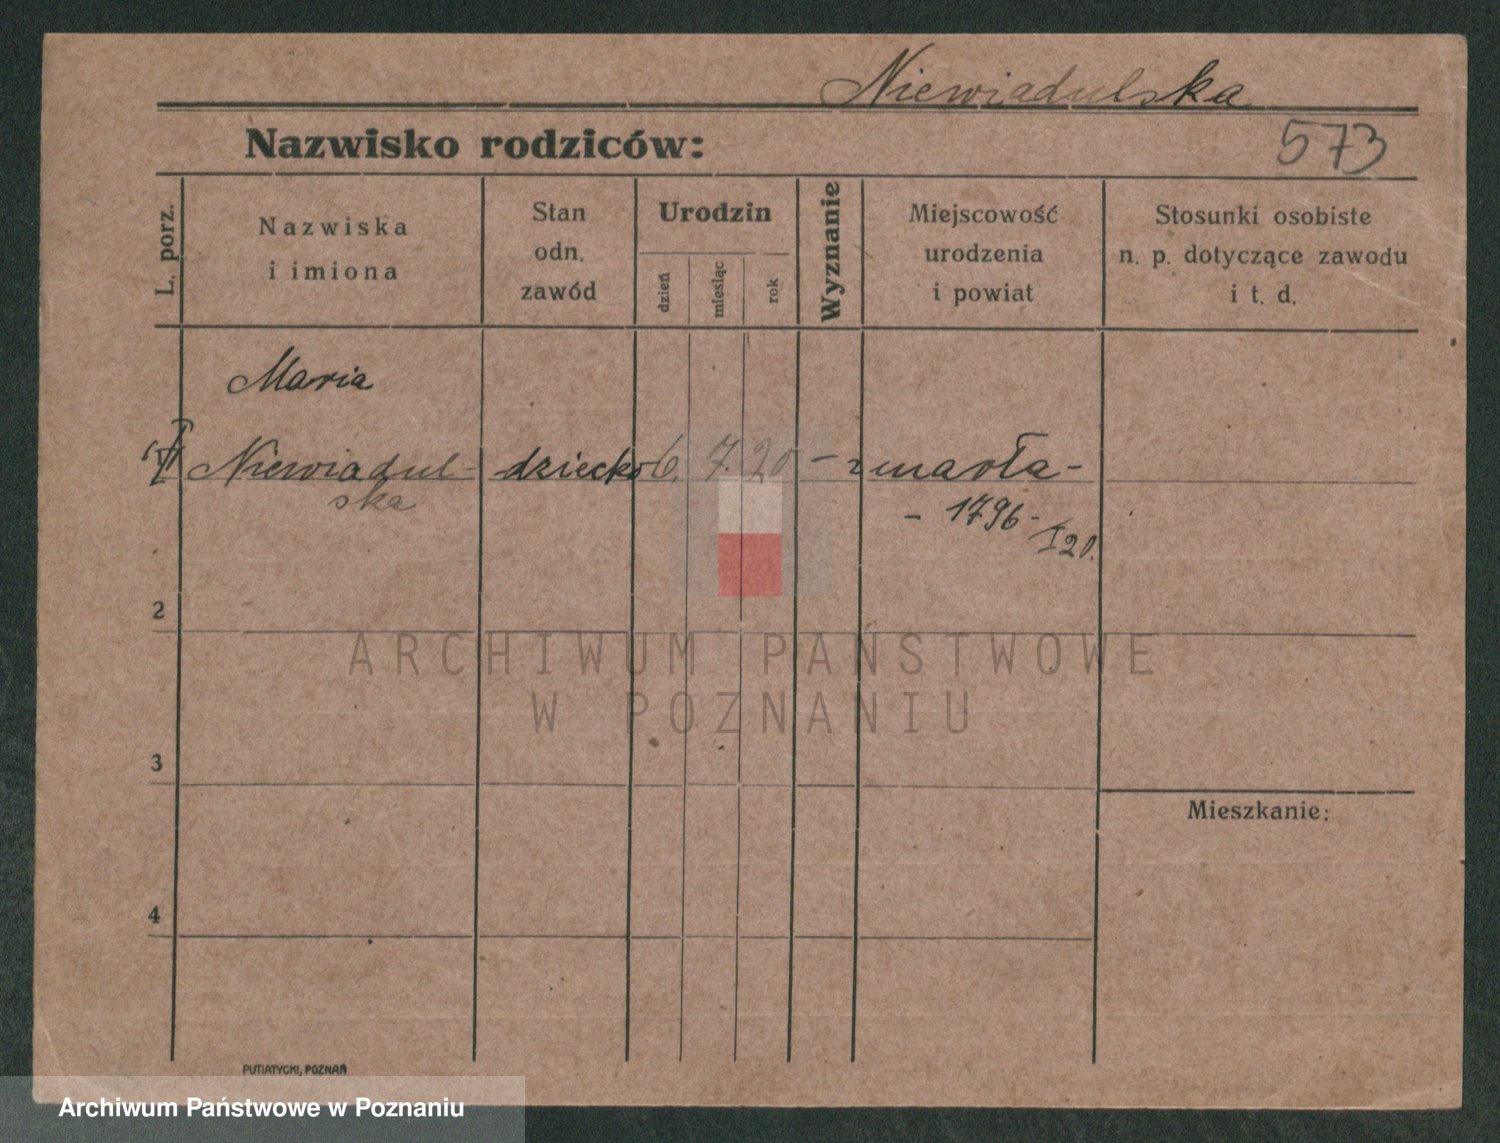 Niewiadulska
Nazwisko rodziców:
573
L. porz.
Nazwiska
i imiona
Stan
odn.
zawód
Urodzin
dzień
miesiąc
rok
Wyznanie
Miejscowość
urodzenia
i powiat
Stosunki osobiste
n. p. dotyczące zawodu
i t. d.
Maria
Niewiadul-
ska
dziecko 6. 7. 20 - zmarła -
- 1796 -
I 20.
2
3
4
Mieszkanie:
ARCHIWUM PAŃSTWOWE
W POZNANIU
PUTIATYCKI, POZNAŃ
Archiwum Państwowe w Poznaniu